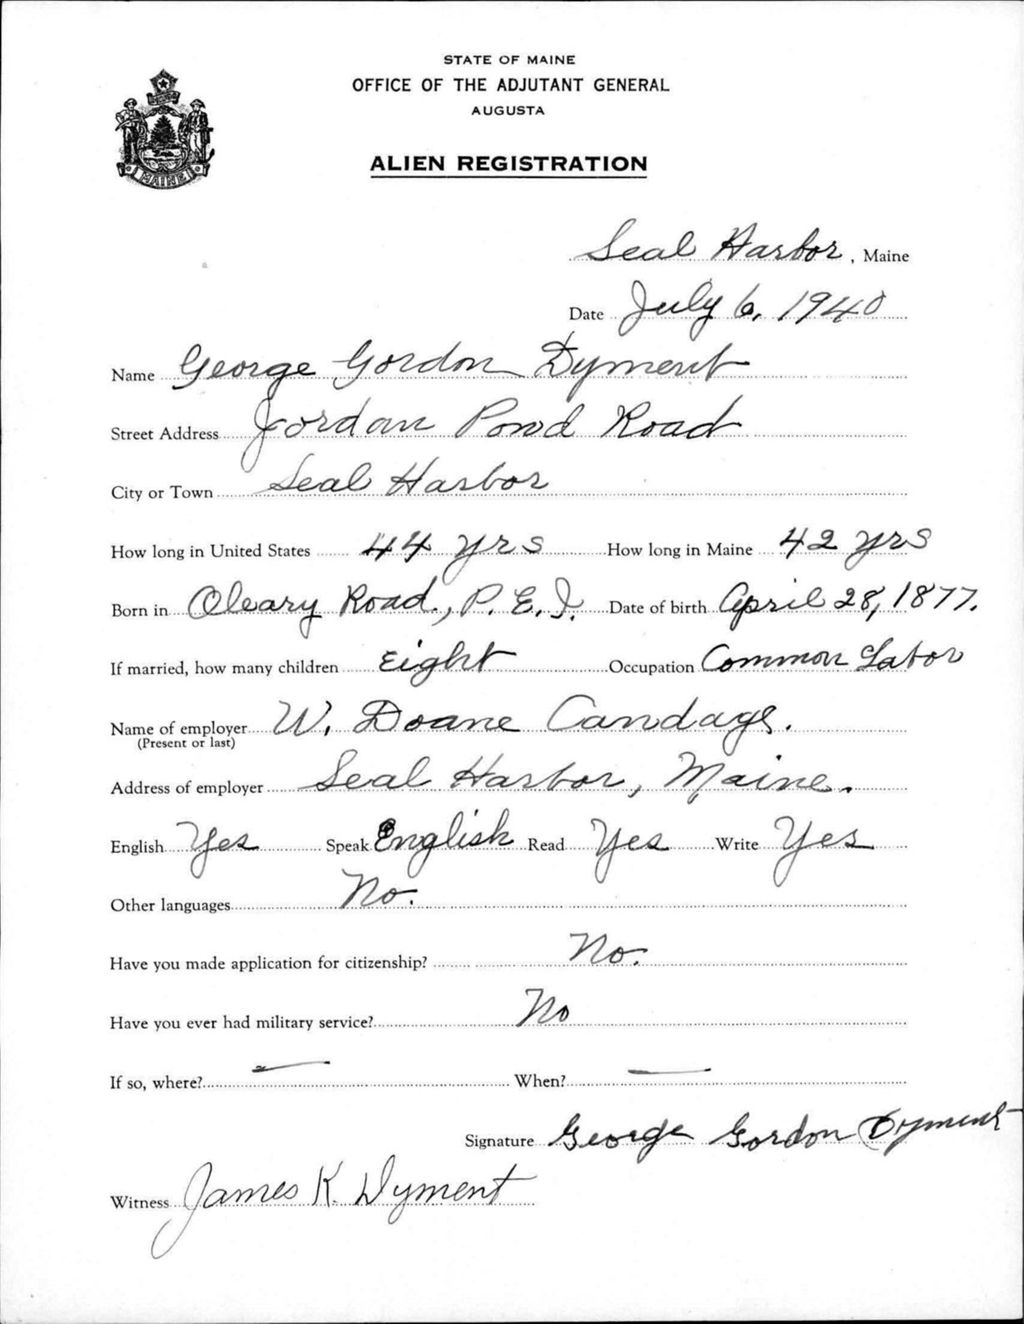 STATE OF MAINE
OFFICE OF THE ADJUTANT GENERAL
AUGUSTA
ALIEN REGISTRATION
MAINE
Seal Harbor, Maine
Date July 6, 1940
Name George Gordon Dyment
Street Address Jordan Pond Road
City or Town Seal Harbor
How long in United States 44 yrs How long in Maine 42 yrs
Born in Oleary Road., P. E. I. Date of birth April 28, 1877.
If married, how many children Eight Occupation Common Labor
Name of employer W. Doane Candage.
(Present or last)
Address of employer Seal Harbor, Maine.
English Yes Speak English Read Yes Write Yes
Other languages No.
Have you made application for citizenship? No.
Have you ever had military service? No
If so, where? — When? —
Signature George Gordon Dyment
Witness James K. Dyment